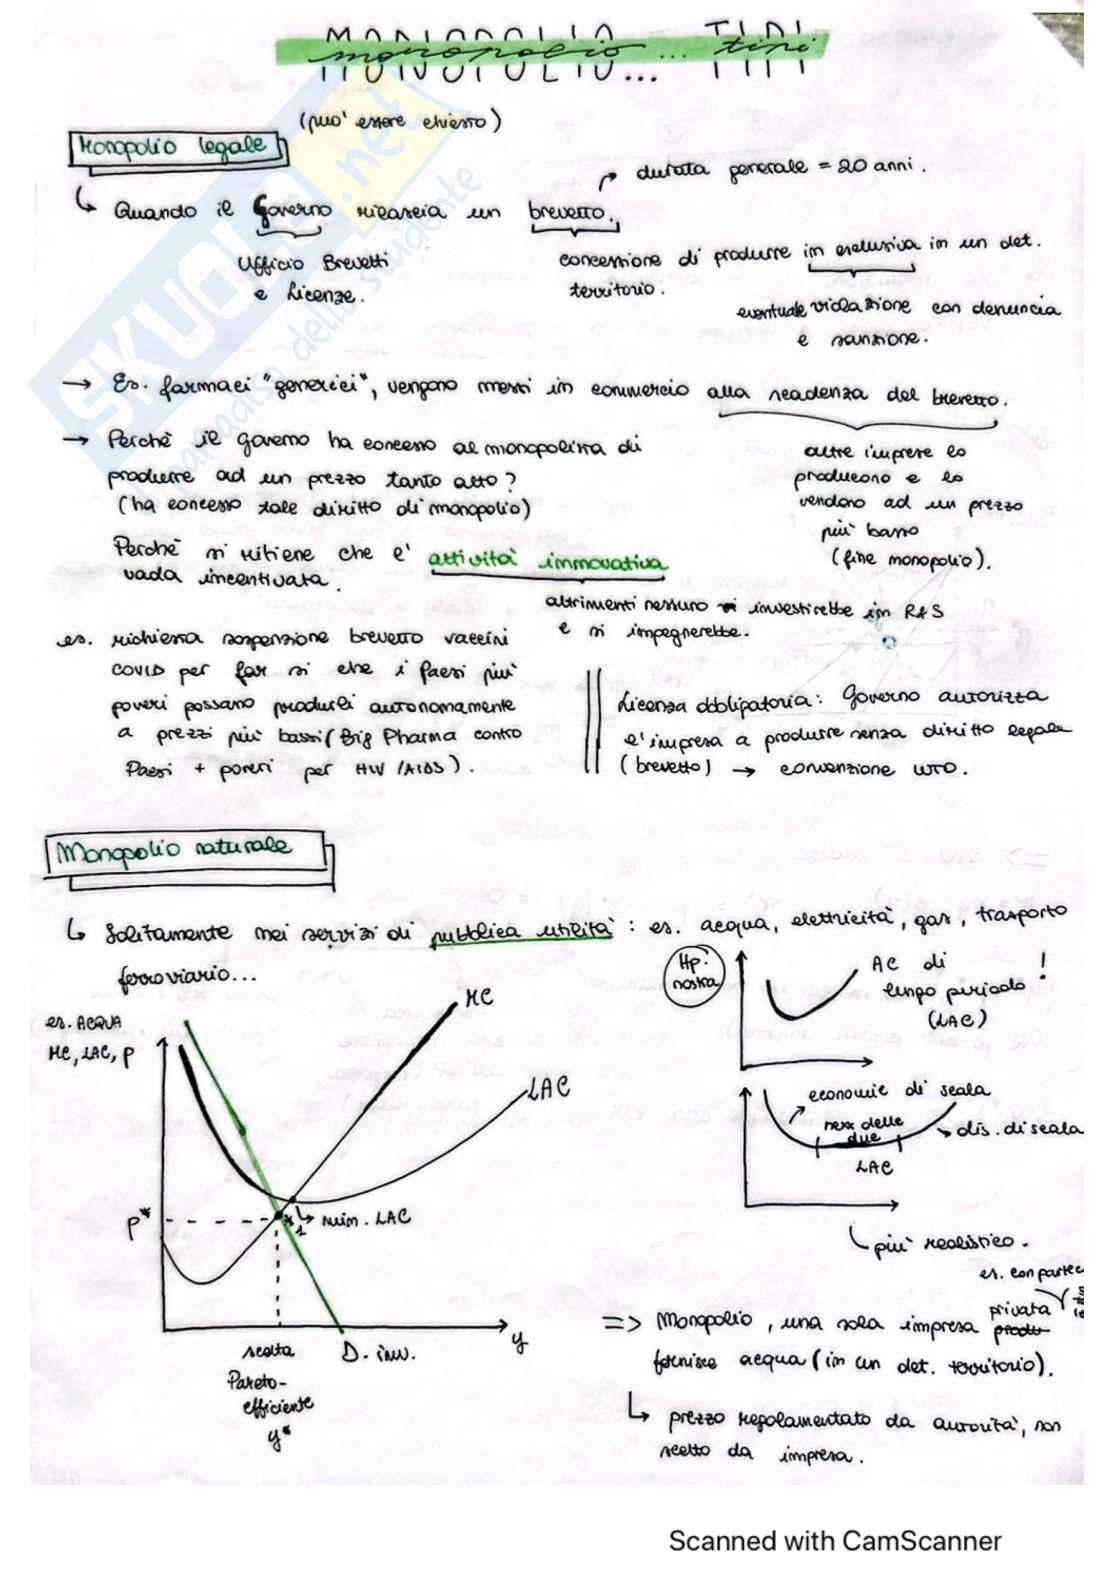 MONOPOLIO... TIPI
monopolio ... tipi
(puo' essere chiesto)
Monopolio legale
durata generale = 20 anni.
↳ Quando il Governo rilascia un brevetto.
Ufficio Brevetti
e Licenze.
concessione di produrre in esclusiva in un det.
territorio.
eventuale violazione con denuncia
e sanzione.
→ Es. farmaci "generici", vengono messi in commercio alla scadenza del brevetto.
altre imprese lo
producono e lo
vendono ad un prezzo
più basso
(fine monopolio).
→ Perchè il governo ha concesso al monopolista di
produrre ad un prezzo tanto alto?
(ha concesso tale diritto di monopolio)
Perchè si ritiene che l' attività innovativa
vada incentivata.
altrimenti nessuno investirebbe in R&S
e si impegnerebbe.
es. richiesta sospensione brevetto vaccini
COVID per far si che i Paesi più
poveri possano produrli autonomamente
a prezzi più bassi (Big Pharma contro
Paesi + poveri per HIV/AIDS).
Licenza obbligatoria: Governo autorizza
l'impresa a produrre senza diritto legale
(brevetto) → convenzione WTO.
Monopolio naturale
↳ Solitamente nei servizi di pubblica utilità: es. acqua, elettricità, gas, trasporto
ferroviario...
Hp.
nostra
AC di
lungo periodo
(LAC)
!
es. ACQUA
MC, LAC, p
MC
LAC
p*
min. LAC
y
scelta
Pareto-
efficiente
y*
D. inv.
economie di scala
ness delle
due
dis. di scala
LAC
↳ più realistico.
es. con partec
=> Monopolio, una sola impresa privata
fornisce acqua (in un det. territorio).
↳ prezzo regolamentato da autorità, non
scelto da impresa.
SKUOLA.net
il paradiso dello studente
Scanned with CamScanner